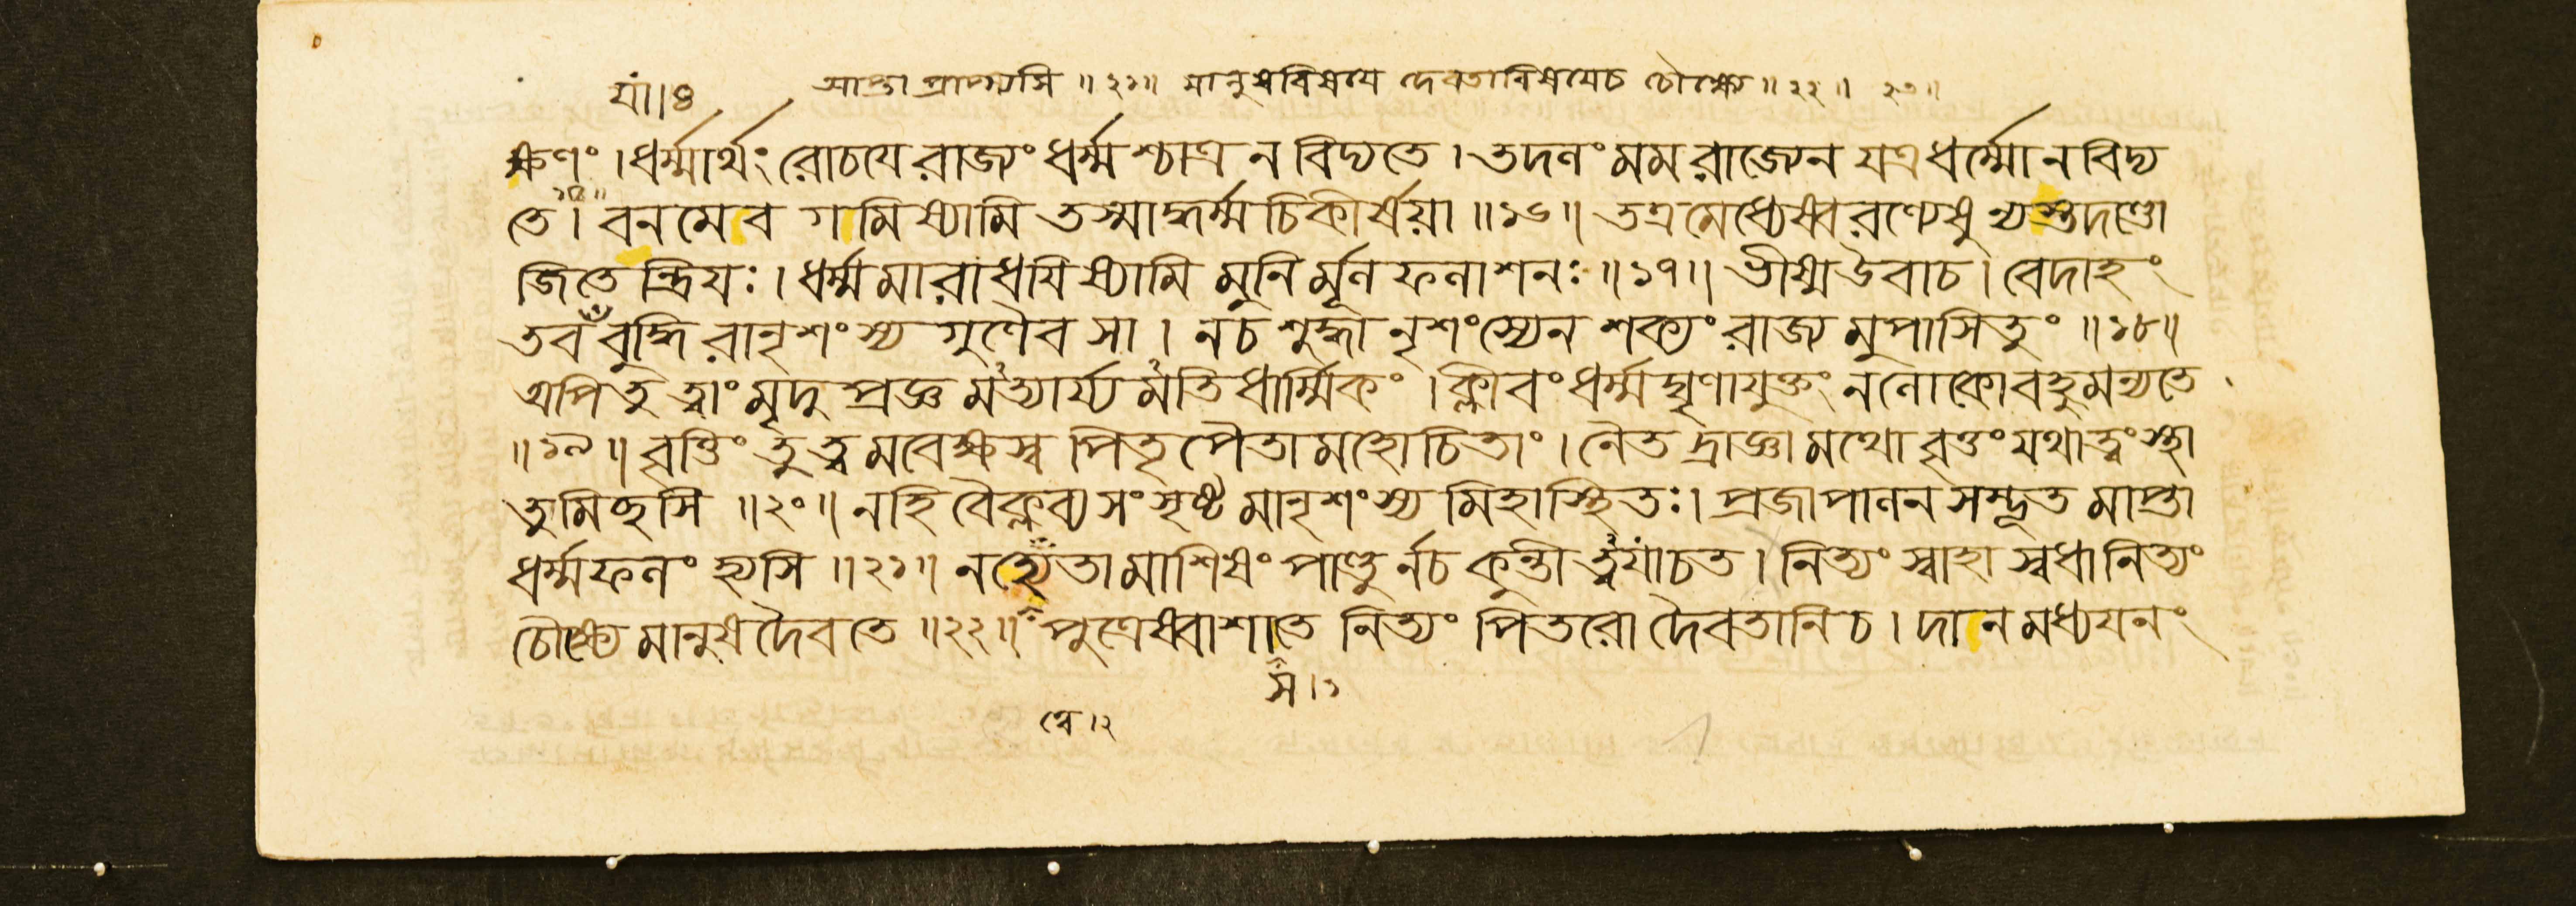 যাং॥৪ আপ্তা প্রাপ্স্যসি ॥২১॥ মানুষবিষয়ে দেবতাবিষয়েচ চোক্ষ্যে॥২২॥ ২৩॥
ক্ষণং । ধর্ম্মার্থং রোচযে রাজ্যং ধর্ম্মশ্চাত্র ন বিদ্যতে । তদলং মম রাজ্যেন যত্র ধর্ম্মো ন বিদ্য
তে । ১৫॥ বনমেব গমিষ্যামি তস্মাদ্ধর্ম্মচিকীর্ষয়া ॥১৬॥ তত্র মেধ্যেষ্বরণ্যেষু ন্যস্তদণ্ডো
জিতেন্দ্রিযঃ । ধর্ম্মমারাধযিষ্যামি মুনির্মূলফলাশনঃ ॥১৭॥ ভীষ্মউবাচ । বেদাহং
তব বুদ্ধিরানৃশংস্য গুণৈব সা । নচ শুদ্ধানৃশংস্যেন শক্যং রাজ্যমুপাসিতুং ॥১৮॥
অপি তু ত্বাং মৃদুপ্রজ্ঞমত্যার্য্যমতিধার্ম্মিকং । ক্লীবং ধর্ম্মঘৃণাযুক্তং নলোকো বহুমন্যতে
॥১৯॥ বৃত্তিং তু ত্বমবেক্ষস্ব পিতৃপৈতামহোচিতাং । নৈতদ্রাজ্ঞামথো বৃত্তং যথা ত্বং স্থা
তুমিচ্ছসি ॥২০॥ নহি বৈক্লব্যসংসৃষ্টমানৃশংস্যমিহাস্থিতঃ । প্রজাপালনসম্ভূতমাপ্তা
ধর্ম্মফলং হ্যসি ॥২১॥ নহ্যেতামাশিষং পাণ্ডুর্নচ কুন্তী ত্বযাচত । নিত্যং স্বাহা স্বধা নিত্যং
চোক্ষ্যে মানুষদৈবতে ॥২২॥ পুত্রেষ্বাশাতে নিত্যং পিতরো দৈবতানি চ । দানমধ্যযনং
স ।১
ত্বে ।২